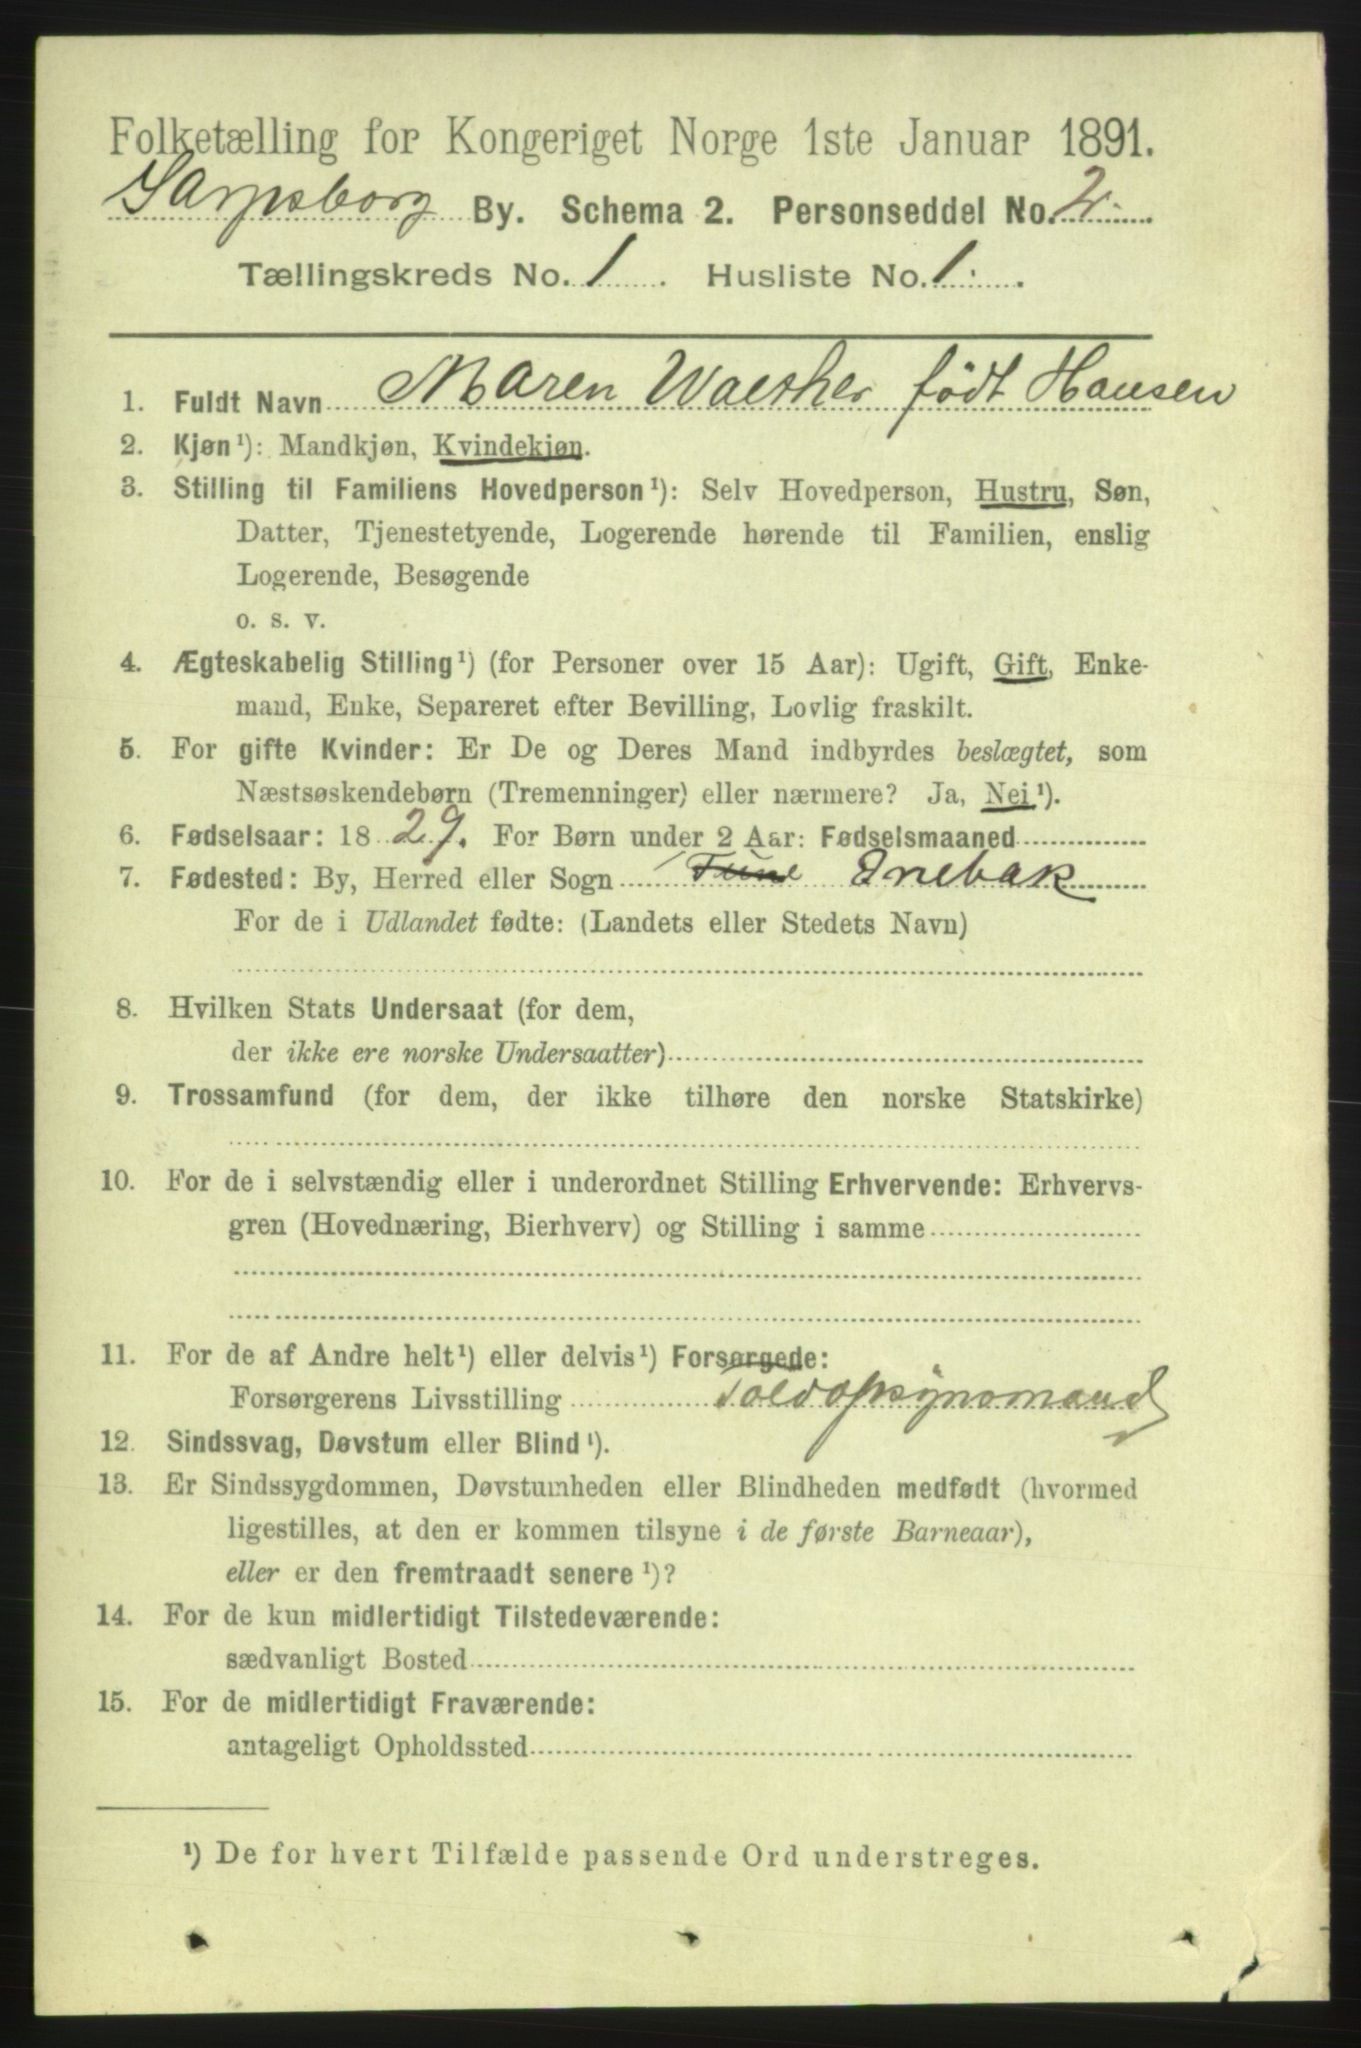 Folketælling for Kongeriget Norge 1ste Januar 1891.
Sarpsborg By. Schema 2. Personseddel No. 2.
Tællingskreds No. 1. Husliste No. 1.
1. Fuldt Navn Maren født Hansen
2. Kjøn¹): Mandkjøn, Kvindekjøn.
3. Stilling til Familiens Hovedperson¹): Selv Hovedperson, Hustru, Søn,
Datter, Tjenestetyende, Logerende hørende til Familien, enslig
Logerende, Besøgende
o. s. v.
4. Ægteskabelig Stilling¹) (for Personer over 15 Aar): Ugift, Gift, Enke-
mand, Enke, Separeret efter Bevilling, Lovlig fraskilt.
5. For gifte Kvinder: Er De og Deres Mand indbyrdes beslægtet, som
Næstsøskendebørn (Tremenninger) eller nærmere? Ja, Nei¹).
6. Fødselsaar: 1829. For Børn under 2 Aar: Fødselsmaaned
7. Fødested: By, Herred eller Sogn Tune Enebak
For de i Udlandet fødte: (Landets eller Stedets Navn)
8. Hvilken Stats Undersaat (for dem,
der ikke ere norske Undersaatter)
9. Trossamfund (for dem, der ikke tilhøre den norske Statskirke)
10. For de i selvstændig eller i underordnet Stilling Erhvervende: Erhvervs-
gren (Hovednæring, Bierhverv) og Stilling i samme
11. For de af Andre helt¹) eller delvis¹) Forsørgede:
Forsørgerens Livsstilling Toldopsynsmand
12. Sindssvag, Døvstum eller Blind¹).
13. Er Sindssygdommen, Døvstumheden eller Blindheden medfødt (hvormed
ligestilles, at den er kommen tilsyne i de første Barneaar),
eller er den fremtraadt senere¹)?
14. For de kun midlertidigt Tilstedeværende:
sædvanligt Bosted
15. For de midlertidigt Fraværende:
antageligt Opholdssted
¹) De for hvert Tilfælde passende Ord understreges.